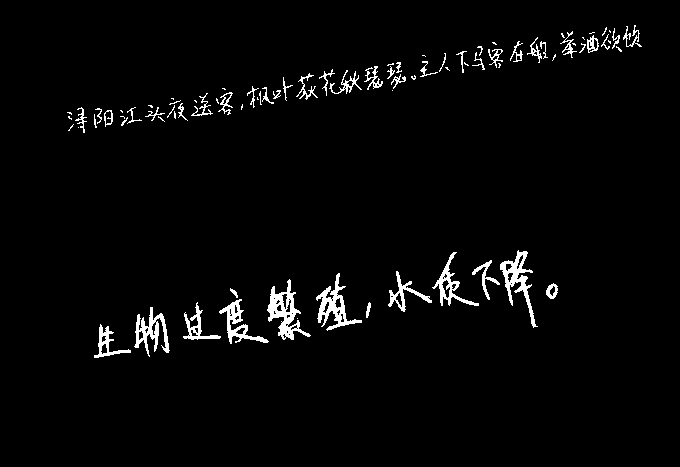 浔阳江头夜送客,枫叶荻花秋瑟瑟。主人下马客在船,举酒欲饮
生物过度繁殖,水质下降。